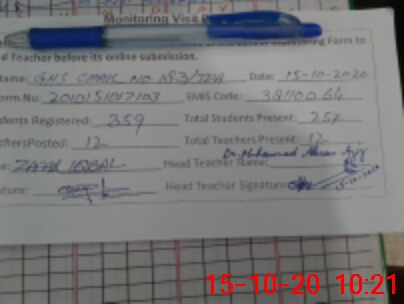 Monitoring Vise
Form to
al Teacher before its online submission.
Name: GHS CHAK NO 183/7ER Date: 15-10-2020
orm No: 2010151017103 EMIS Code: 38110064
dents Registered: 359 Total Students Present: 257
chersPosted: 12 Total Teachers Present: 12
e: ZAFAR IQBAL Head Teacher Name:
ature: Head Teacher Signature:
15-10-2020
15-10-20 10:21